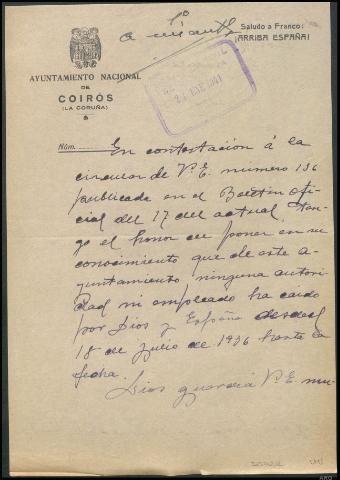 Saludo a Franco:
¡ARRIBA ESPAÑA!
AYUNTAMIENTO NACIONAL
DE
COIRÓS
(LA CORUÑA)
24 ENE 1941
Núm.
En contestación á la
circular de V.E. número 136
publicada en el Boletin Ofi-
cial del 17 del actual, ten-
go el honor de poner en su
conocimiento que de este a-
yuntamiento ninguna autori-
dad ni empleado ha caido
por Dios y España desde el
18 de julio de 1936 hasta la
fecha.
Dios guarde á V.E. mu-